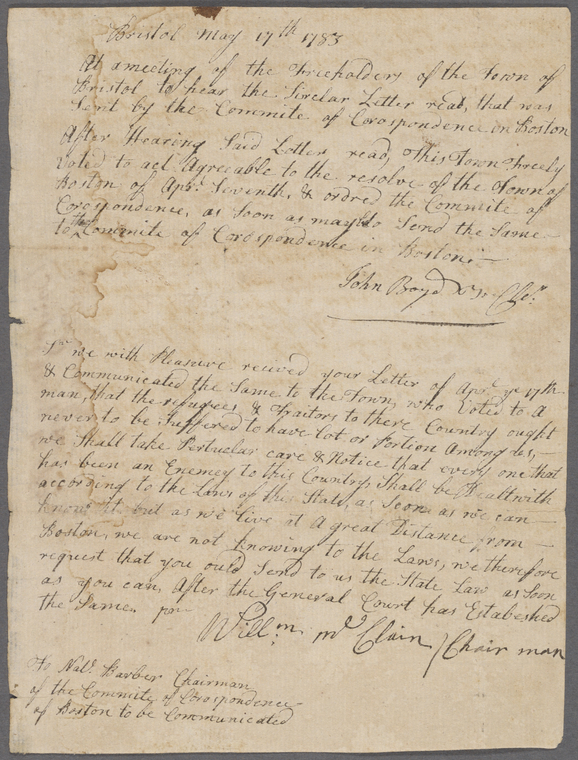 Bristol May 17th 1783
At ameeting of the Freeholders of the Town of
Bristol to hear the Sirclar Letter read, that was
Sent by the Commite of Corospondence in Boston
After Hearing Said Letter read, This Town Freely
Voted to act Agreeable to the resolve of the Town of
Boston of Apr. Seventh, & ordred the Commite of
Corospondence, as Soon as may be to Send the Same
to the Commite of Corospondence in Boston
John Boyd Clr.
Sr. we with Pleasure recived your Letter of Apr. ye 17th
& Communicated the Same to the Town, who Voted to A
man, that the refugees & Traitors to there Country ought
never to be Suffered to have lot or Portion Among us,
we Shall take Pertuclar care & Notice that every one that
has been an Enemey to this Country Shall be Dealt with
according to the Laws of this State, as Soon as we can
know it but as we live at A great Distance from
Boston, we are not knowing to the Laws, we therefore
request that you ould Send to us the State Law as Soon
as you can, After the General Court has Estabeshed
the Same, pr
Willm. Mc Clain / Chair man
To Natl. Barber Chairman
of the Commite of Corospondence
of Boston to be Communicated